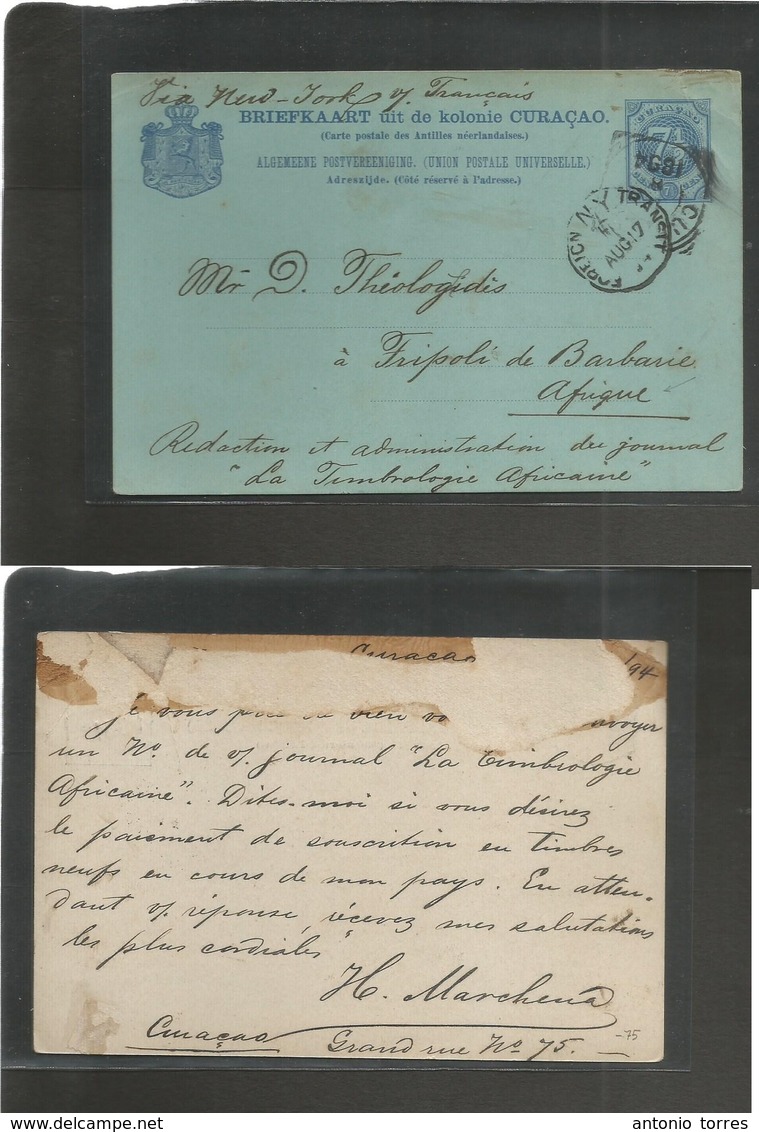 Via New-York v/. Français
BRIEFKAART uit de kolonie CURAÇAO.
(Carte postale des Antilles néerlandaises.)
ALGEMEENE POSTVEREENIGING. (UNION POSTALE UNIVERSELLE.)
Adreszijde. (Côté réservé à l'adresse.)
CURAÇAO
7½
1894
N.Y.
FOREIGN TRANSIT
AUG 17
Mr D. Théologidis
à Tripoli de Barbarie
Afrique
Redaction et administration du journal
"La Timbrologie Africaine"
Curacao /94
je vous
un No. de v/. journal "La Timbrologie
Africaine". Dites-moi si vous désirez
le paiement de souscrition en timbres
neufs en cours de mon pays. En atten-
dant v/. réponse, récevez mes salutations
les plus cordiales
H. Marchena
Curaçao Grand rue No 75.
-75
antonio torres